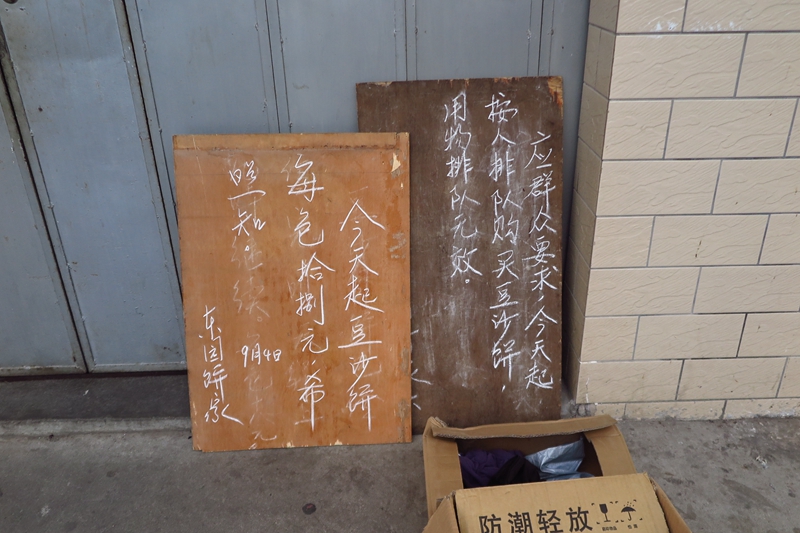 应群众要求，今天起
按人排队购买豆沙饼，
用物排队无效。
今天起豆沙饼
每包拾捌元，希
照知。
9月4日
防潮轻放